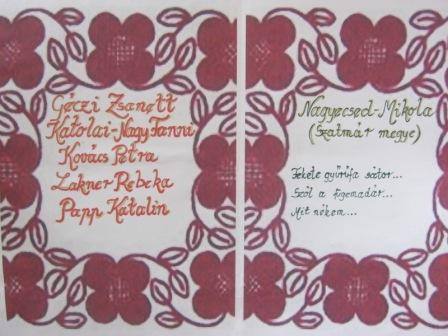 Géczi Zsanett
Katolai-Nagy Fanni
Kovács Petra
Lakner Rebeka
Papp Katalin
Nagyecsed-Mikola
(Szatmár megye)
Fekete gyűrűfa sátor...
Szól a fügemadár...
Mit nékem...